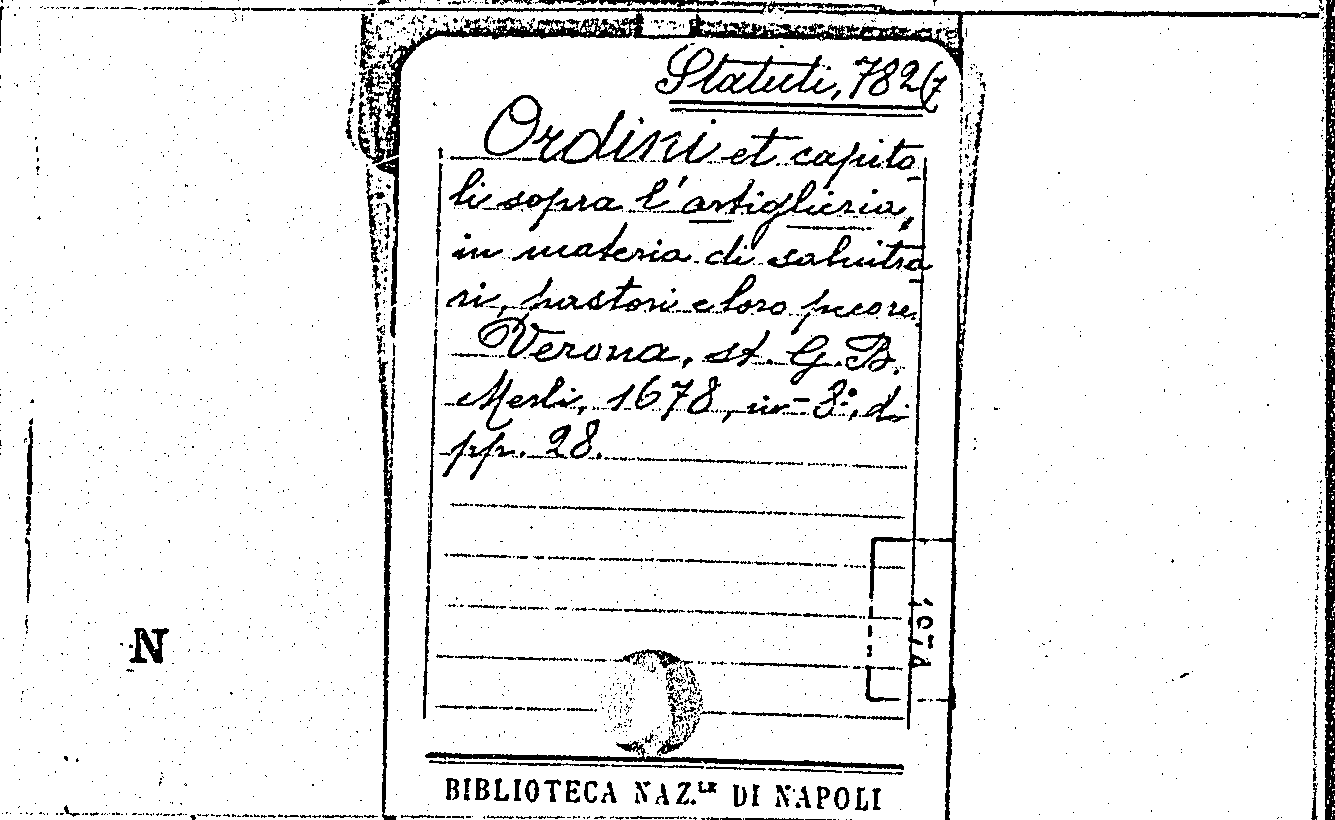 Statuti, 782(7
Ordini et capito-
li sopra l'artiglieria,
in materia di salnitra-
ri, pastori e loro pecore.
Verona, st. G. B.
Merli, 1678, in-8º, di
pp. 28.
1974
N
BIBLIOTECA NAZ.LE DI NAPOLI